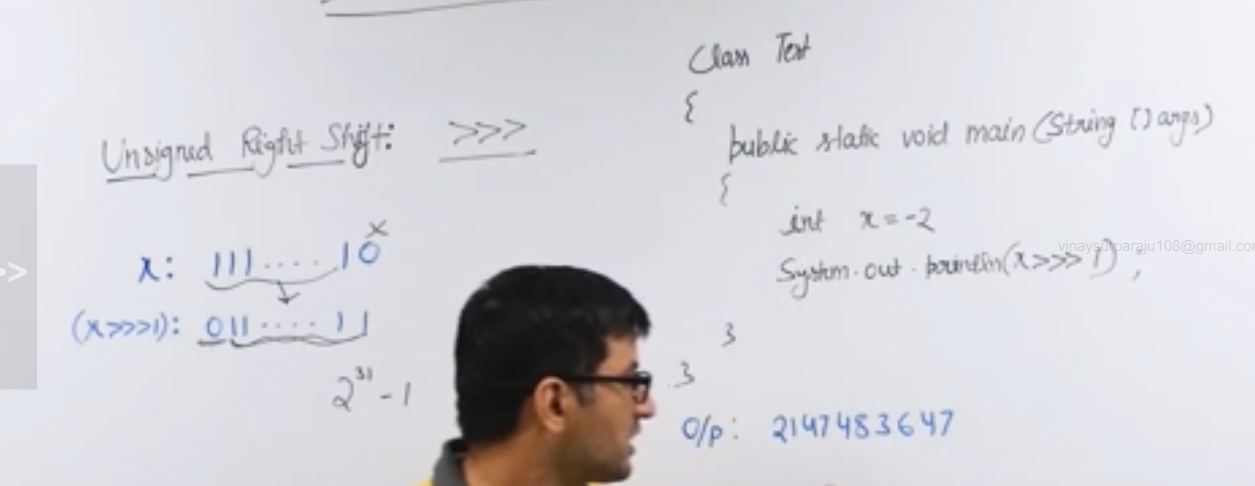 Unsigned Right Shift: >>>
x: 111....10
x
(x>>>1): 011....11
2^31 - 1
Class Test
{
public static void main(String []args)
{
int x = -2
System.out.println(x>>>1);
}
}
O/p: 2147483647
vinaysutparaju108@gmail.com
>>